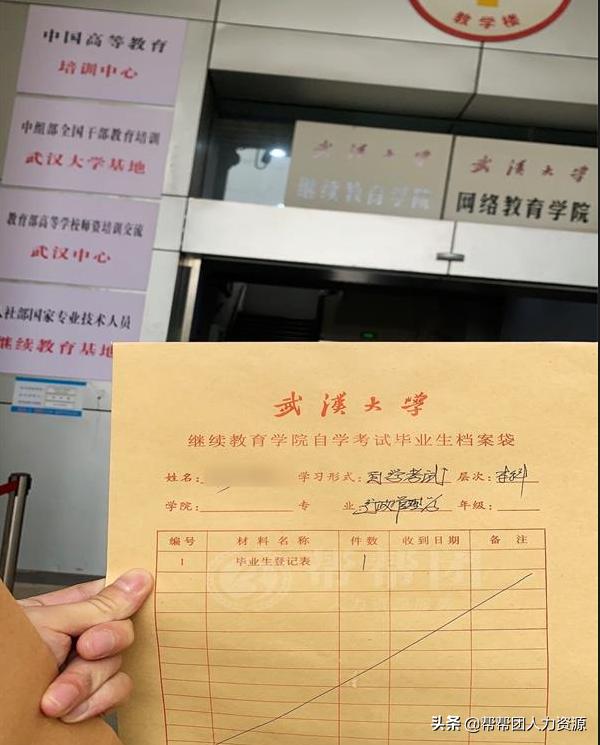 教学楼
中国高等教育
培训中心
中组部全国干部教育培训
武汉大学基地
教育部高等学校师资培训交流
武汉中心
人社部国家专业技术人员
继续教育基地
武漢大學
继续教育学院
武漢大學
网络教育学院
武漢大學
继续教育学院自学考试毕业生档案袋
姓名: 学习形式: 自学考试 层次: 本科
学院: 专业 行政管理 年级:
编号 材料名称 件数 收到日期 备注
1 毕业生登记表 1
头条 @帮帮团人力资源